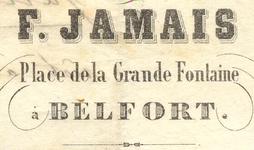 F. JAMAIS
Place de la Grande Fontaine
à BELFORT.